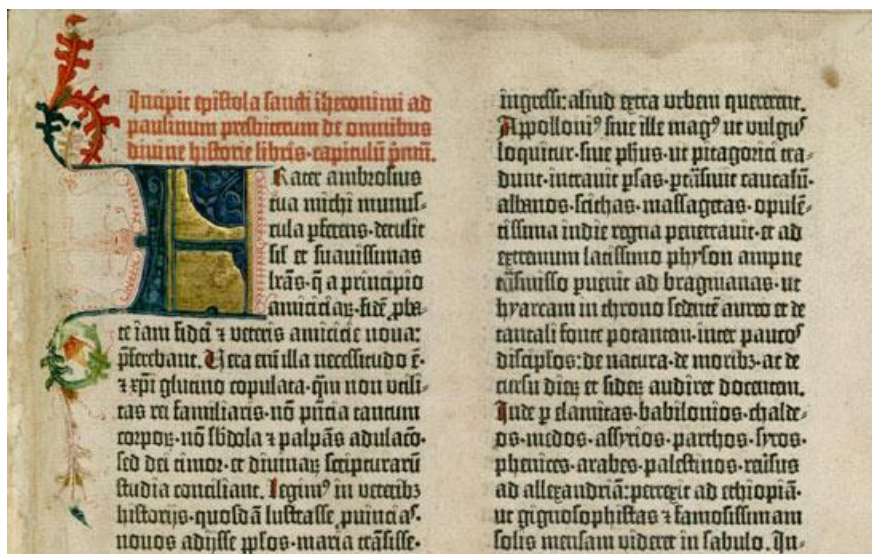 Incipit epistola sancti iheronimi ad
paulinum presbiterum de omnibus
divine historie libris · capitulū pⁱmū.
Frater ambrosius
tua michi munus-
cula ꝑferens · detulit
sil̕ et suavissimas
lr̄as · q̄ a principio
amiciciaꝝ · fidē ꝓba-
te iam fidei ⁊ veteris amicicie nova:
p̄ferebant. Vera em̄ illa necessitudo ē ·
⁊ xp̄i glutino copulata · qm̄ non utili-
tas rei familiaris · nō pn̄cia tantum
corpoꝝ · nō s̄bdola ⁊ palpās adulac̄o ·
sed dei timor · et divinaꝝ scripturarū
studia conciliant. Legimꝰ in veteribꝫ
historijs · quosdā lustrasse ꝓuincias ·
novos adijsse ppl̄os · maria trāsisse ·
ingressi: aliud extra urbem quererent.
Appollonius sive ille magꝰ ut vulgus
loquitur · sive ph̄us · ut pitagorici tra-
dunt · intravit ꝑsas · ptrāsivit caucasū ·
albanos · scithas · massagetas · opulē-
tissima indie regna penetravit · et ad
extremum latissimo physon ampne
trāsmisso puenit ad bragmanas · ut
hyarcam in throno sedentē aureo et de
tantali fonte potantem · inter paucos
discipl̄os: de natura · de moribꝫ · ac de
cursu dieꝝ et sideꝝ audiret docentem.
Inde ꝑ elamitas · babilonios · chalde-
os · medos · assyrios · parthos · syros ·
phenices · arabes · palestinos · reūsus
ad allexandriā: perrexit ad ethiopiā ·
ut gignosophistas ⁊ famosissimam
solis mensam videret in sabulo. In-